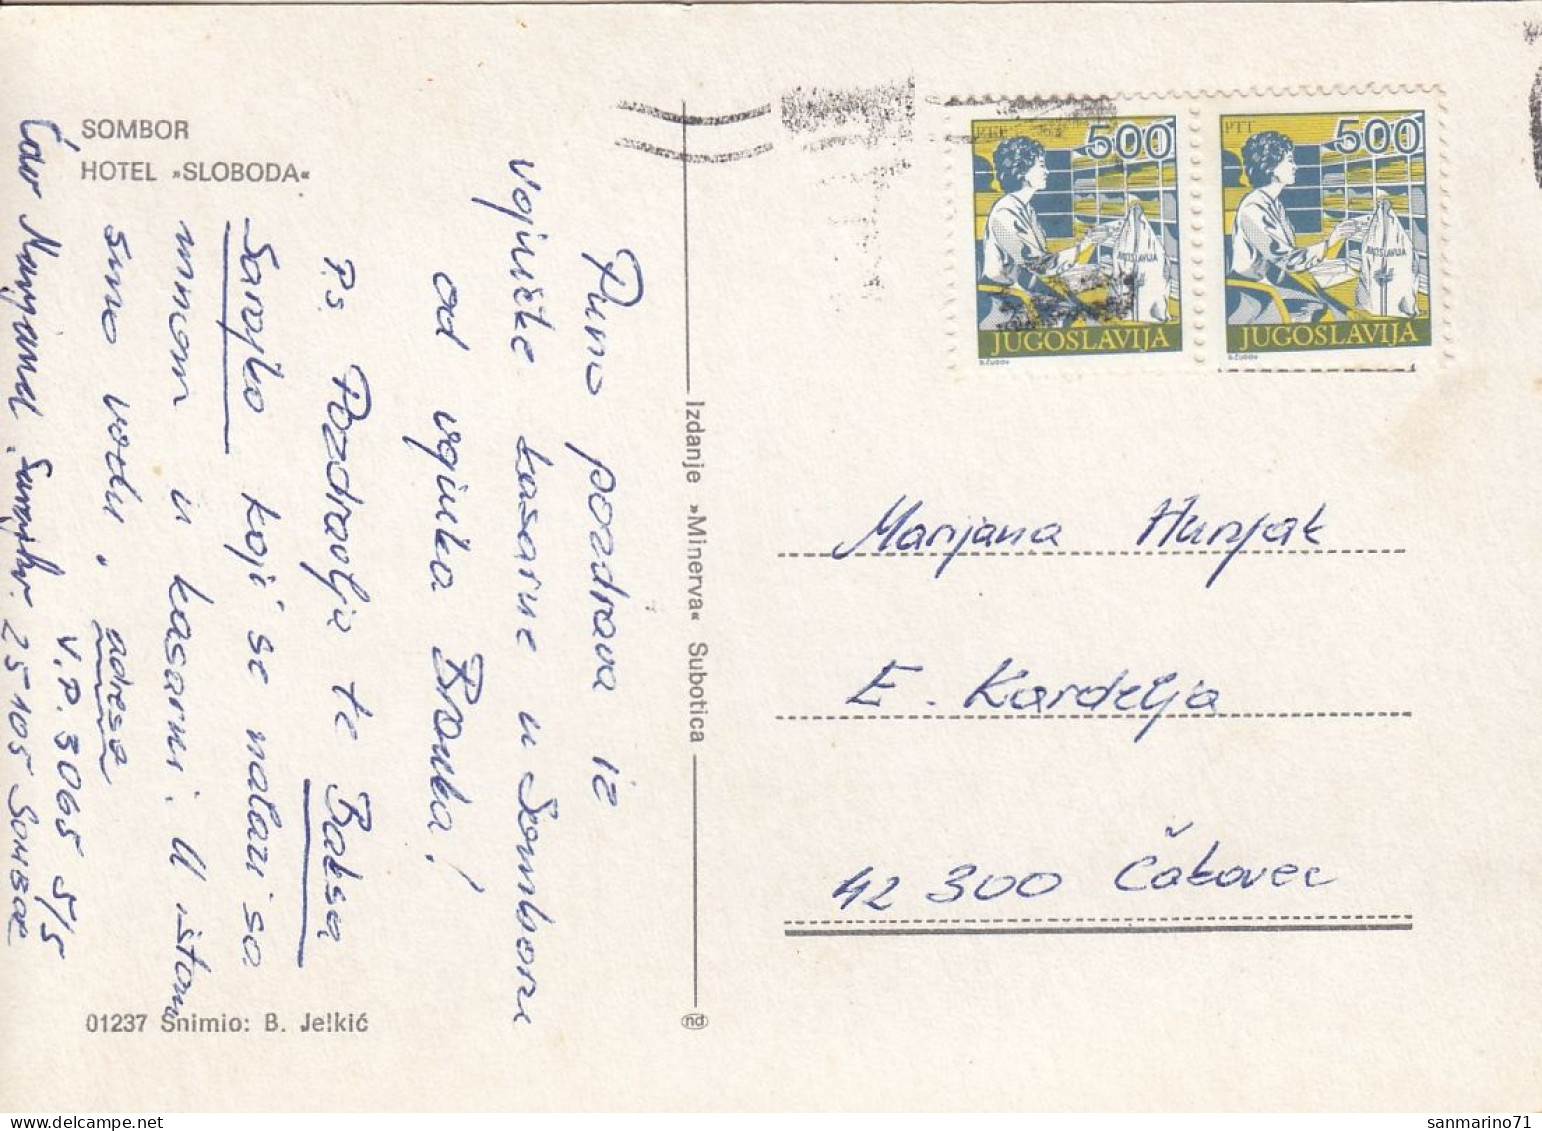 SOMBOR
HOTEL »SLOBODA«
Puno pozdrava iz
vojničke kasarne u Sombor
od vojnika Branka!
P.S. Pozdravlja te Baksa
Sarajko koji se nalazi sa
mnom u kasarni. U istom
smo vodu,
adresa
V.P. 3065 5/5
25105 SOMBOR
01237 Snimio: B. Jelkić
Izdanje »Minerva« Subotica
nd
PTT 500
JUGOSLAVIJA
JUGOSLAVIJA
B.ČUDOV
PTT 500
JUGOSLAVIJA
JUGOSLAVIJA
B.ČUDOV
Marjana Hunjak
E. Kardelja
42 300 Čakovec
sanmarino71